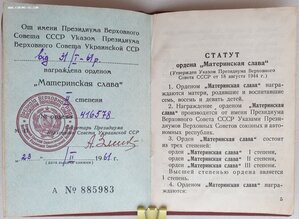 От имени Президиума Верховного
Совета СССР Указом Президиума
Верховного Совета Украинской ССР
від 31/I-61р.
награждена орденом
„Материнская слава“
степени
№ 416578
Президиума
Верховного Совета
23 II 1961 г.
А № 885983
СТАТУТ
ордена „Материнская слава“
(Утвержден Указом Президиума Верховного
Совета СССР от 18 августа 1944 г.)
1. Орденом „Материнская слава“ награждаются
матери, родившие и воспитавшие
семь, восемь и девять детей.
2. Награждение орденом „Материнская
слава“ производится от имени Президиума
Верховного Совета СССР Указами Президиумов
Верховных Советов союзных и автономных
республик.
3. Орден „Материнская слава“ состоит
из трех степеней:
орден „Материнская слава“ I степени,
орден „Материнская слава“ II степени,
орден „Материнская слава“ III степени.
Высшей степенью ордена является
I степень.
4. Орденом „Материнская слава“ награждаются:
5